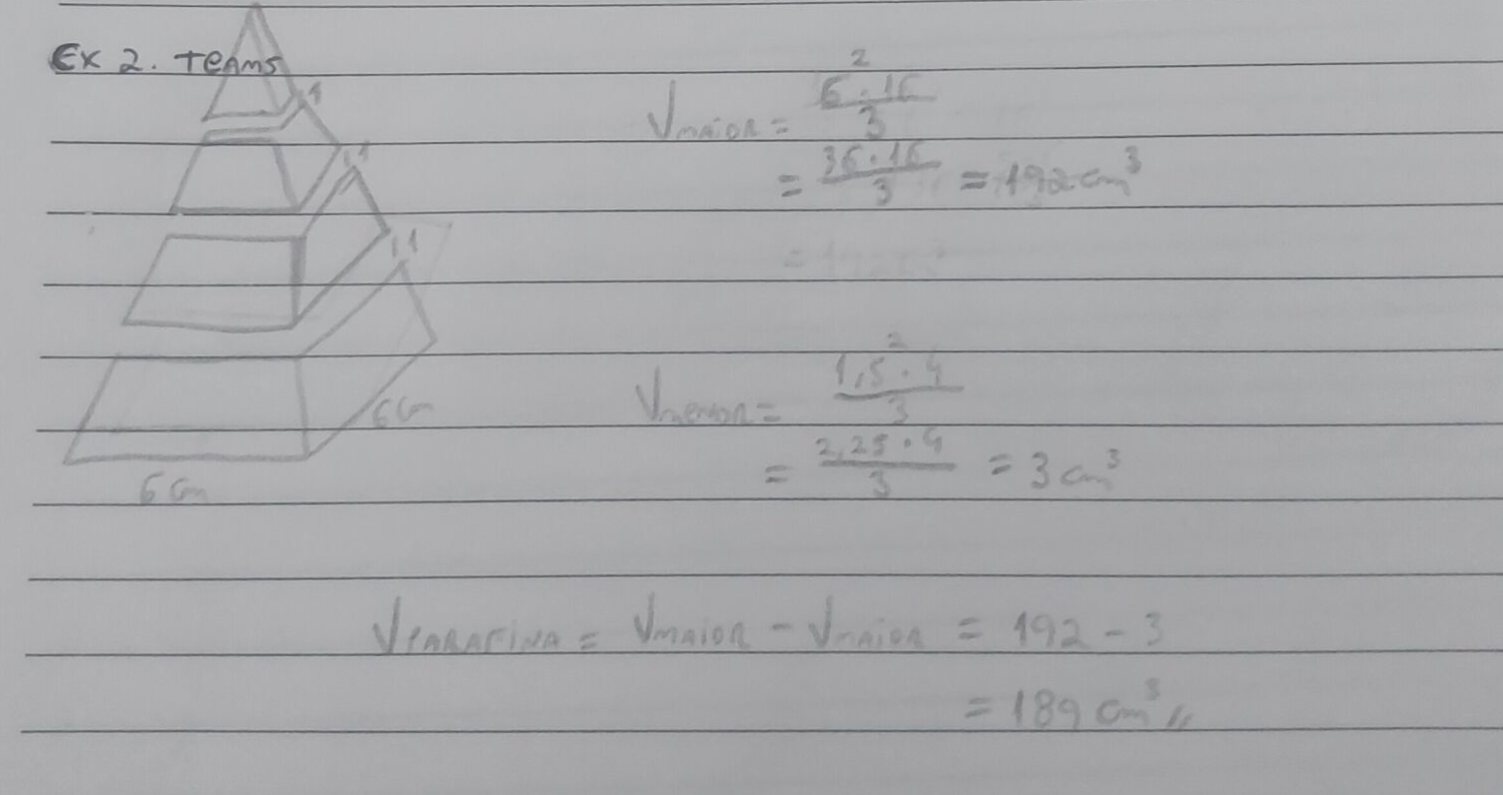 Ex 2. Teams
1
1
1
6cm
6cm
Vmaior = 6² · 16 / 3
= 36 · 16 / 3 = 192 cm³
Vmenor = 1,5² · 4 / 3
= 2,25 · 4 / 3 = 3 cm³
Vparafina = Vmaior - Vmaior = 192 - 3
= 189 cm³ //